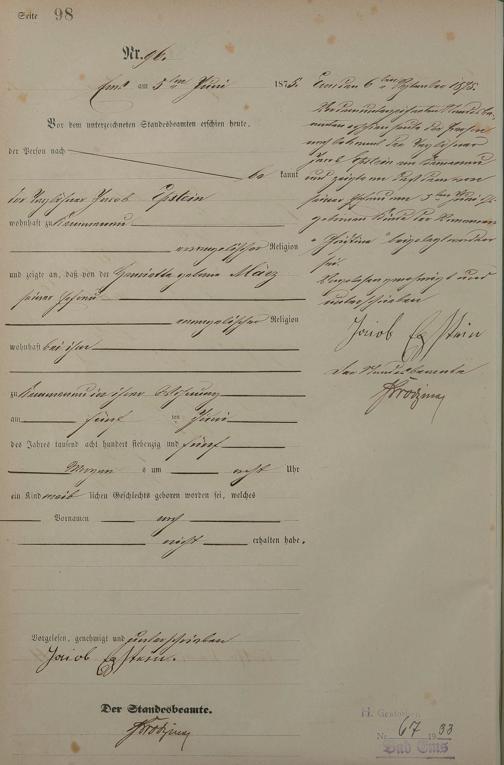 Seite 98
Nr. 96.
Ems am 5ten Juni 1875.
Vor dem unterzeichneten Standesbeamten erschien heute,
der Person nach
be kannt
der Taglöhner Jacob Epstein
wohnhaft zu Kemmenau
evangelischer Religion
und zeigte an, daß von der Henriette geborene Maez
seiner Ehefrau
evangelischer Religion
wohnhaft bei ihm
zu Kemmenau in ihrer Wohnung
am fünf ten Juni
des Jahres tausend acht hundert siebenzig und fünf
Morgens um acht Uhr
ein Kind weib lichen Geschlechts geboren worden sei, welches
Vornamen noch
nicht erhalten habe.
Vorgelesen, genehmigt und unterschrieben
Jacob Epstein.
Der Standesbeamte.
Ems den 6ten September 1875.
Vor dem unterzeichneten Standesbe-
amten erschien heute der Person
nach bekannt der Taglöhner
Jacob Epstein aus Kemmenau
und zeigte an daß dem von
seiner Ehefrau am 5ten Juni
geborenen Kinde der Vorname
"Christine" beigelegt worden
sei
Vorgelesen genehmigt und
unterschrieben
Jacob Epstein
Der Standesbeamte
H.
Nr. 67 1933
Bad Ems